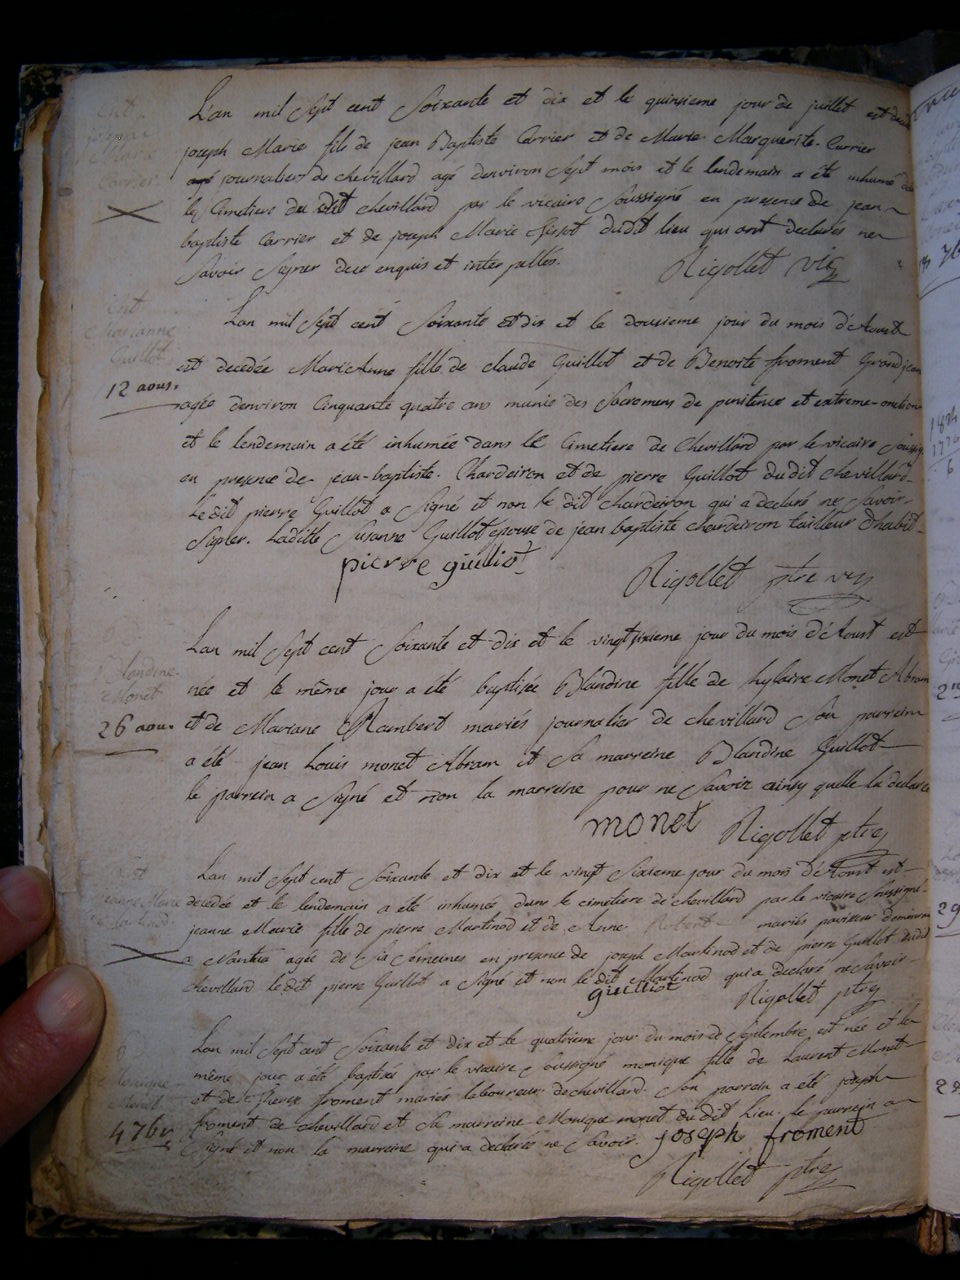 Ent
joseph
Marie
Carrier
L'an mil Sept cent Soixante et dix et le quinsieme jour de juillet est
joseph Marie fils de jean Baptiste Carrier et de Marie Marguerite Carrier
journalier de chevillard agé denviron Sept mois et le lendemain a été inhumé
le Cimetiere du dit chevillard par le vicaire Soussigné en presence de jean
baptiste Carrier et de joseph Marie dudit lieu qui ont declarés ne
Savoir Signer de ce enquis et interpellés.
Rigollet vic
Ent
Guillot
12 aous.
Lan mil Sept cent Soixante et dix et le dousieme jour du mois d'Aoust
est decedée MarieAnne fille de claude Guillot et de Benoite froment Grandjean
agée denviron Cinquante quatre ans munie des Sacremens de penitence et extreme-onction
et le lendemain a été inhumée dans le Cimetiere de Chevillard par le vicaire
en presence de jean-baptiste Chardeiron et de pierre Guillot du dit chevillard
Le dit pierre Guillot a Signé et non le dit Chardeiron qui a declaré ne Savoir
Signer. Laditte Susanne Guillot epouse de jean baptiste chardeiron tailleur d'habit
pierre guilliot
Rigollet ptre vic
Blandine
Monet
26 aou.
Lan mil Sept cent Soixante et dix et le vingtsixieme jour du mois d'Aoust est
née et le même jour a été baptisée Blandine fille de hylaire Monet Abram
et de Mariane Rambert mariés journalier de chevillard Son parrein
a été jean Louis monet Abram et Sa marreine Blandine Guillot
le parrein a Signé et non la marreine pour ne Savoir ainsy quelle la declaré
monet Rigollet ptre
jeanne Marie
Martinod
Lan mil Sept cent Soixante et dix et le vingt Sixieme jour du mois d'Aoust est
decedée et le lendemain a été inhumée dans le cimetiere de chevillard par le vicaire Soussigné
jeanne Marie fille de pierre Martinod et de Anne Robert mariés
a Nantua agée de Six Semeines en presence de joseph Martinod et de pierre Guillot dudit
chevillard le dit pierre Guillot a Signé et non le dit Martinod qui a declaré ne Savoir
guilliot Rigollet ptre
B.
Monique
Monet
4 7bre
Lan mil Sept cent Soixante et dix et le quatrieme jour du mois de Septembre est née et le
même jour a été baptisé par le vicaire Soussigné monique fille de Laurent Monet
et de Therese froment mariés laboureur de chevillard. Son parrein a été joseph
froment de chevillard et Sa marreine Monique monet du dit Lieu. le parrein a
Signé et non la marreine qui a declarée ne Savoir. joseph froment
Rigollet ptre